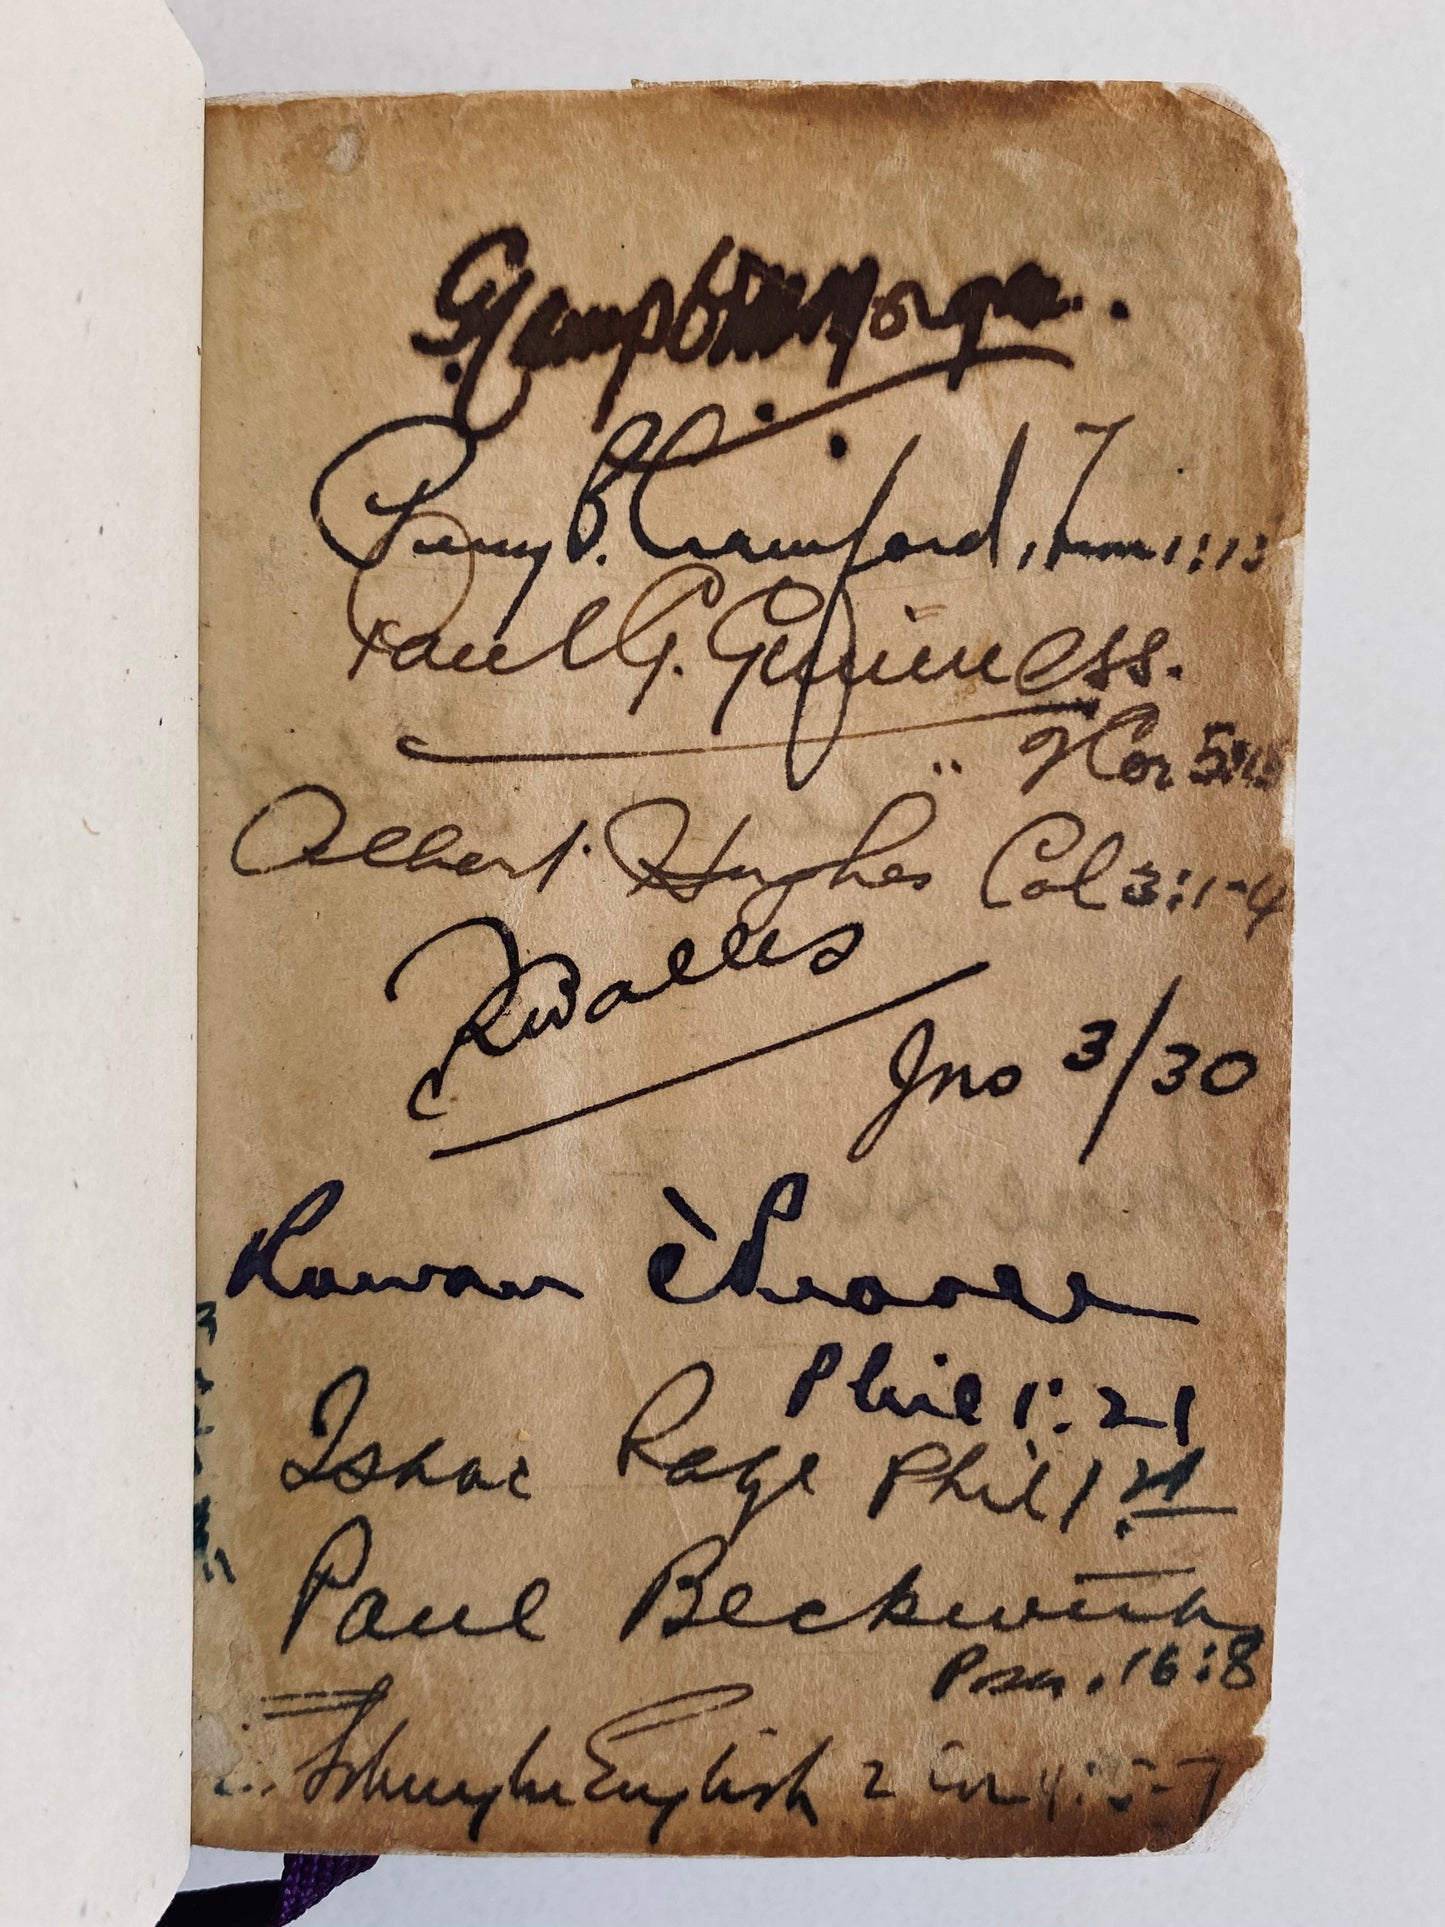 G. Campbell Morgan.
Percy B. Crawford, 1 Tim 1:15
Paul G. Guinness.
Cor 5:15
Albert Hughes Col 3:1-4
Jno 3/30
Rowan
Phil 1:21
Isaac Page Phil 1:21
Paul Beckwith
Psa. 16:8
E. Schuyler English 2 Cor 4:5-7